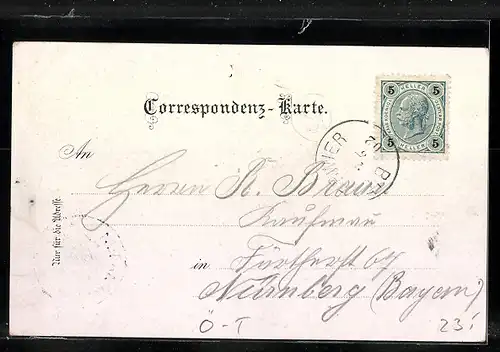 Correspondenz-Karte.
5 HELLER 5
5 HELLER 5
An
Herrn R. Braun
Kaufmann
in Fürtherst 67
Nürnberg (Bayern)
Nur für die Adresse.
Ö-T
23.